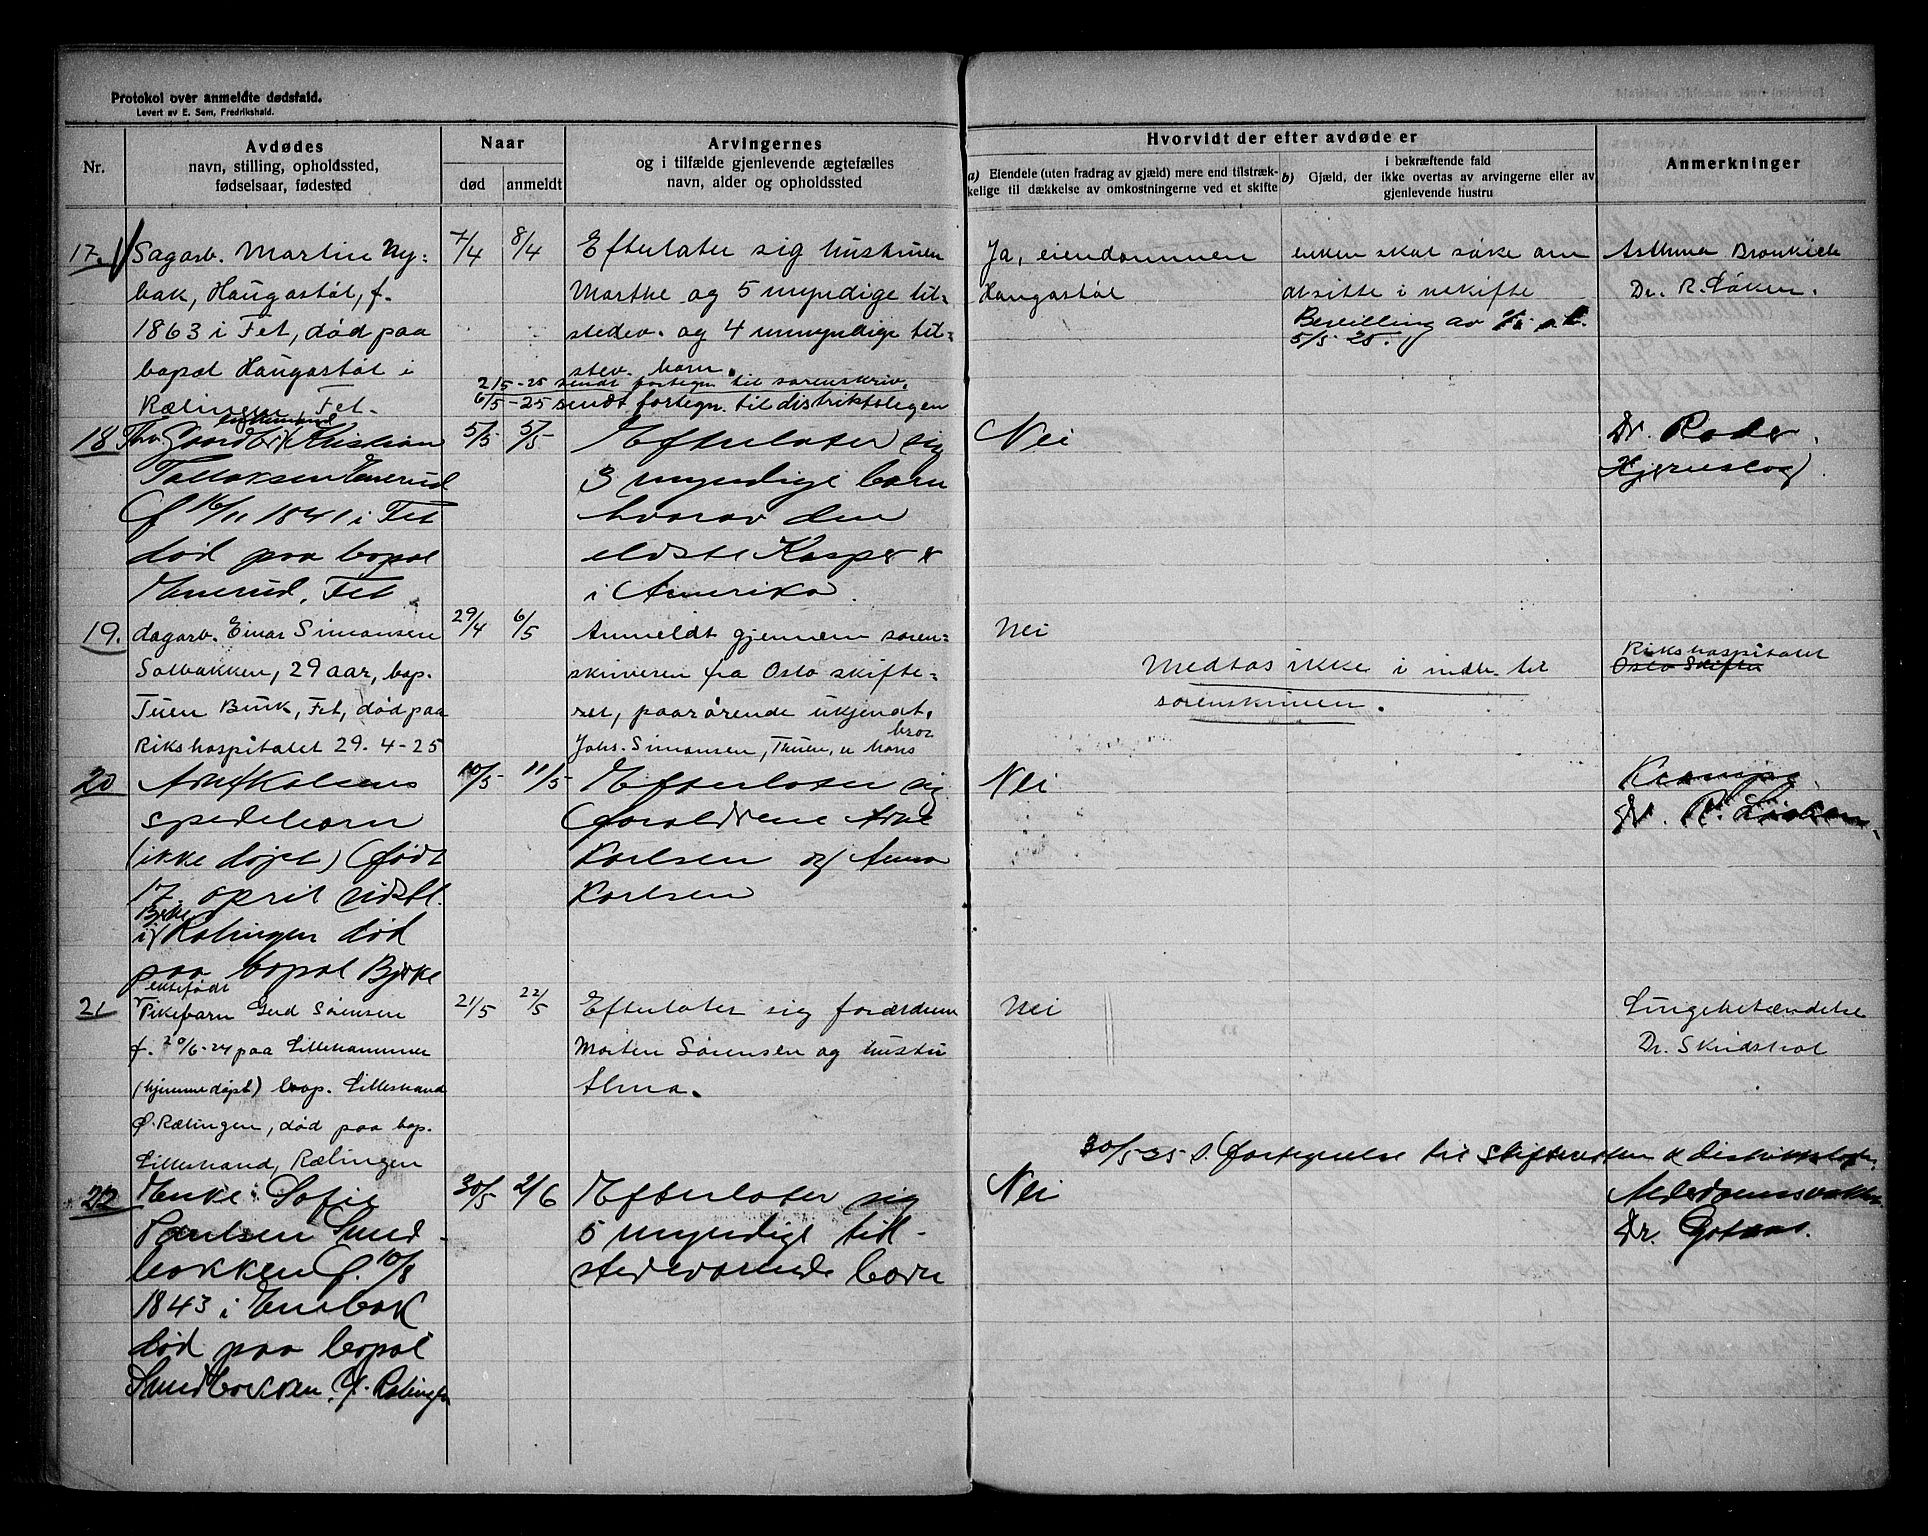 Protokol over anmeldte dødsfald.
Levert av E. Sem, Fredrikshald.
Nr.
Avdødes
navn, stilling, opholdssted,
fødselsaar, fødested
Naar
død
anmeldt
Arvingernes
og i tilfælde gjenlevende ægtefælles
navn, alder og opholdssted
Hvorvidt der efter avdøde er
a) Eiendele (uten fradrag av gjæld) mere end tilstræk-
kelige til dækkelse av omkostningerne ved et skifte
i bekræftende fald
b) Gjæld, der ikke overtas av arvingerne eller av
gjenlevende hustru
Anmerkninger
17.
Sagarb. Martin Ny-
bak, Haugastøl, f.
1863 i Fet, død paa
bopæl Haugastøl i
Rælingen, Fet.
7/4
8/4
Efterlater sig hustruen
Marthe og 5 myndige til-
stedev. og 4 umyndige til-
stev. barn.
2/5-25 sendt fortegn. til sorenskriv.
6/5-25 sendt fortegn. til distriktslegen
Ja, eiendommen
Haugastøl
enken skal søke om
at sitte i uskifte
Bevilling av
5/5 25.
Asthma Bronkiele
Dr. R. Løken.
18
Kristian
Tollaksen Enerud
f 16/11 1841 i Fet
død paa bopæl
Enerud, Fet
5/5
5/5
Efterlater sig
3 myndige barn
hvorav den
eldste Kasper er
i Amerika.
Nei
Dr. Roder.
Hjerneslag
19.
dagarb. Einar Simonsen
Solbakken, 29 aar, bop.
Tuen Bruk, Fet, død paa
Rikshospitalet 29.4-25
29/4
6/5
Anmeldt gjennem soren-
skriveren fra Oslo skifte-
ret, paarørende ukjendt.
bror
Johs. Simonsen, Thuen, er hans
Nei
Medtas ikke i indb. til
sorenskriveren.
Rikshospitalet
Oslo Skifte
20
Karlsens
spedebarn
(ikke døpt) født
17. april sidstl.
Bjrke
i Rælingen død
paa bopæl Bjrke
10/5
11/5
Efterlater sig
foreldrene Arne
Karlsen og Anna
Karlsen
Nei
Krampe.
Dr. R. Løken.
21
ektefødt
Pikebarn Gerd Sørensen
f. 20/6-24 paa Lillehammer
(hjemmedøpt) bop. Lillestrand
Ø. Rælingen, død paa bop.
Lillestrand, Rælingen
21/5
22/5
Efterlater sig forældrene
Morten Sørensen og hustru
Alma.
Nei
Lungebetændelse
Dr. Skirdstrøl
30/5-25 s. fortegnelse til skifteretten &
22
Enke Sofie
Paulsen Sund-
bakken f. 10/8
1843 i Enebak
død paa bopæl
Sundbakken, Ø. Rælingen
30/5
2/6
Efterlater sig
5 myndige til-
stedeværende barn
Nei
Alderdomssvakhet
Dr. Gotaas.